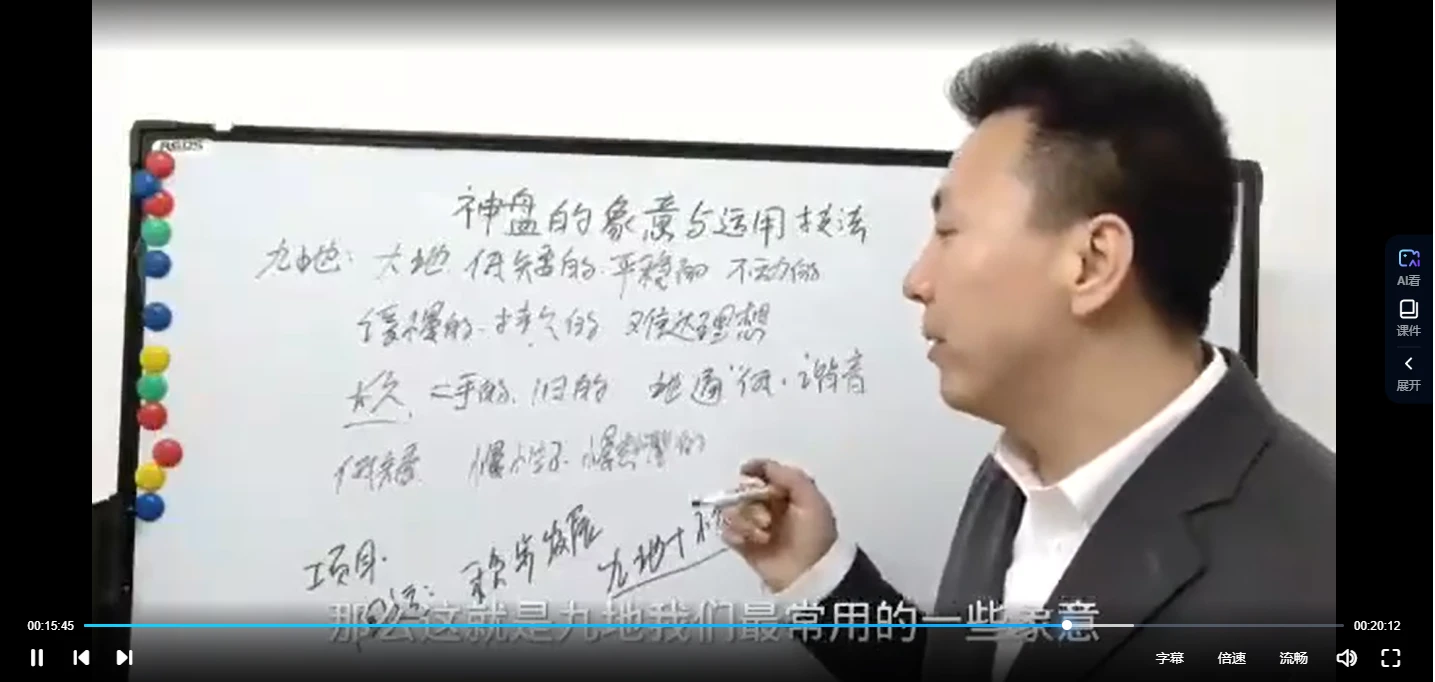 ASUS
神盘的象意与运用技法
九地：大地、低矮的、平稳的 不动的
缓慢的、持久的 难达理想
长久、二手的、旧的 地通“低”、谐音
低矮 慢性子、慢
项目、 稳步发展 九地十
那么这就是九地我们最常用的一些象意
AI看
课件
展开
00:15:45
00:20:12
字幕 倍速 流畅